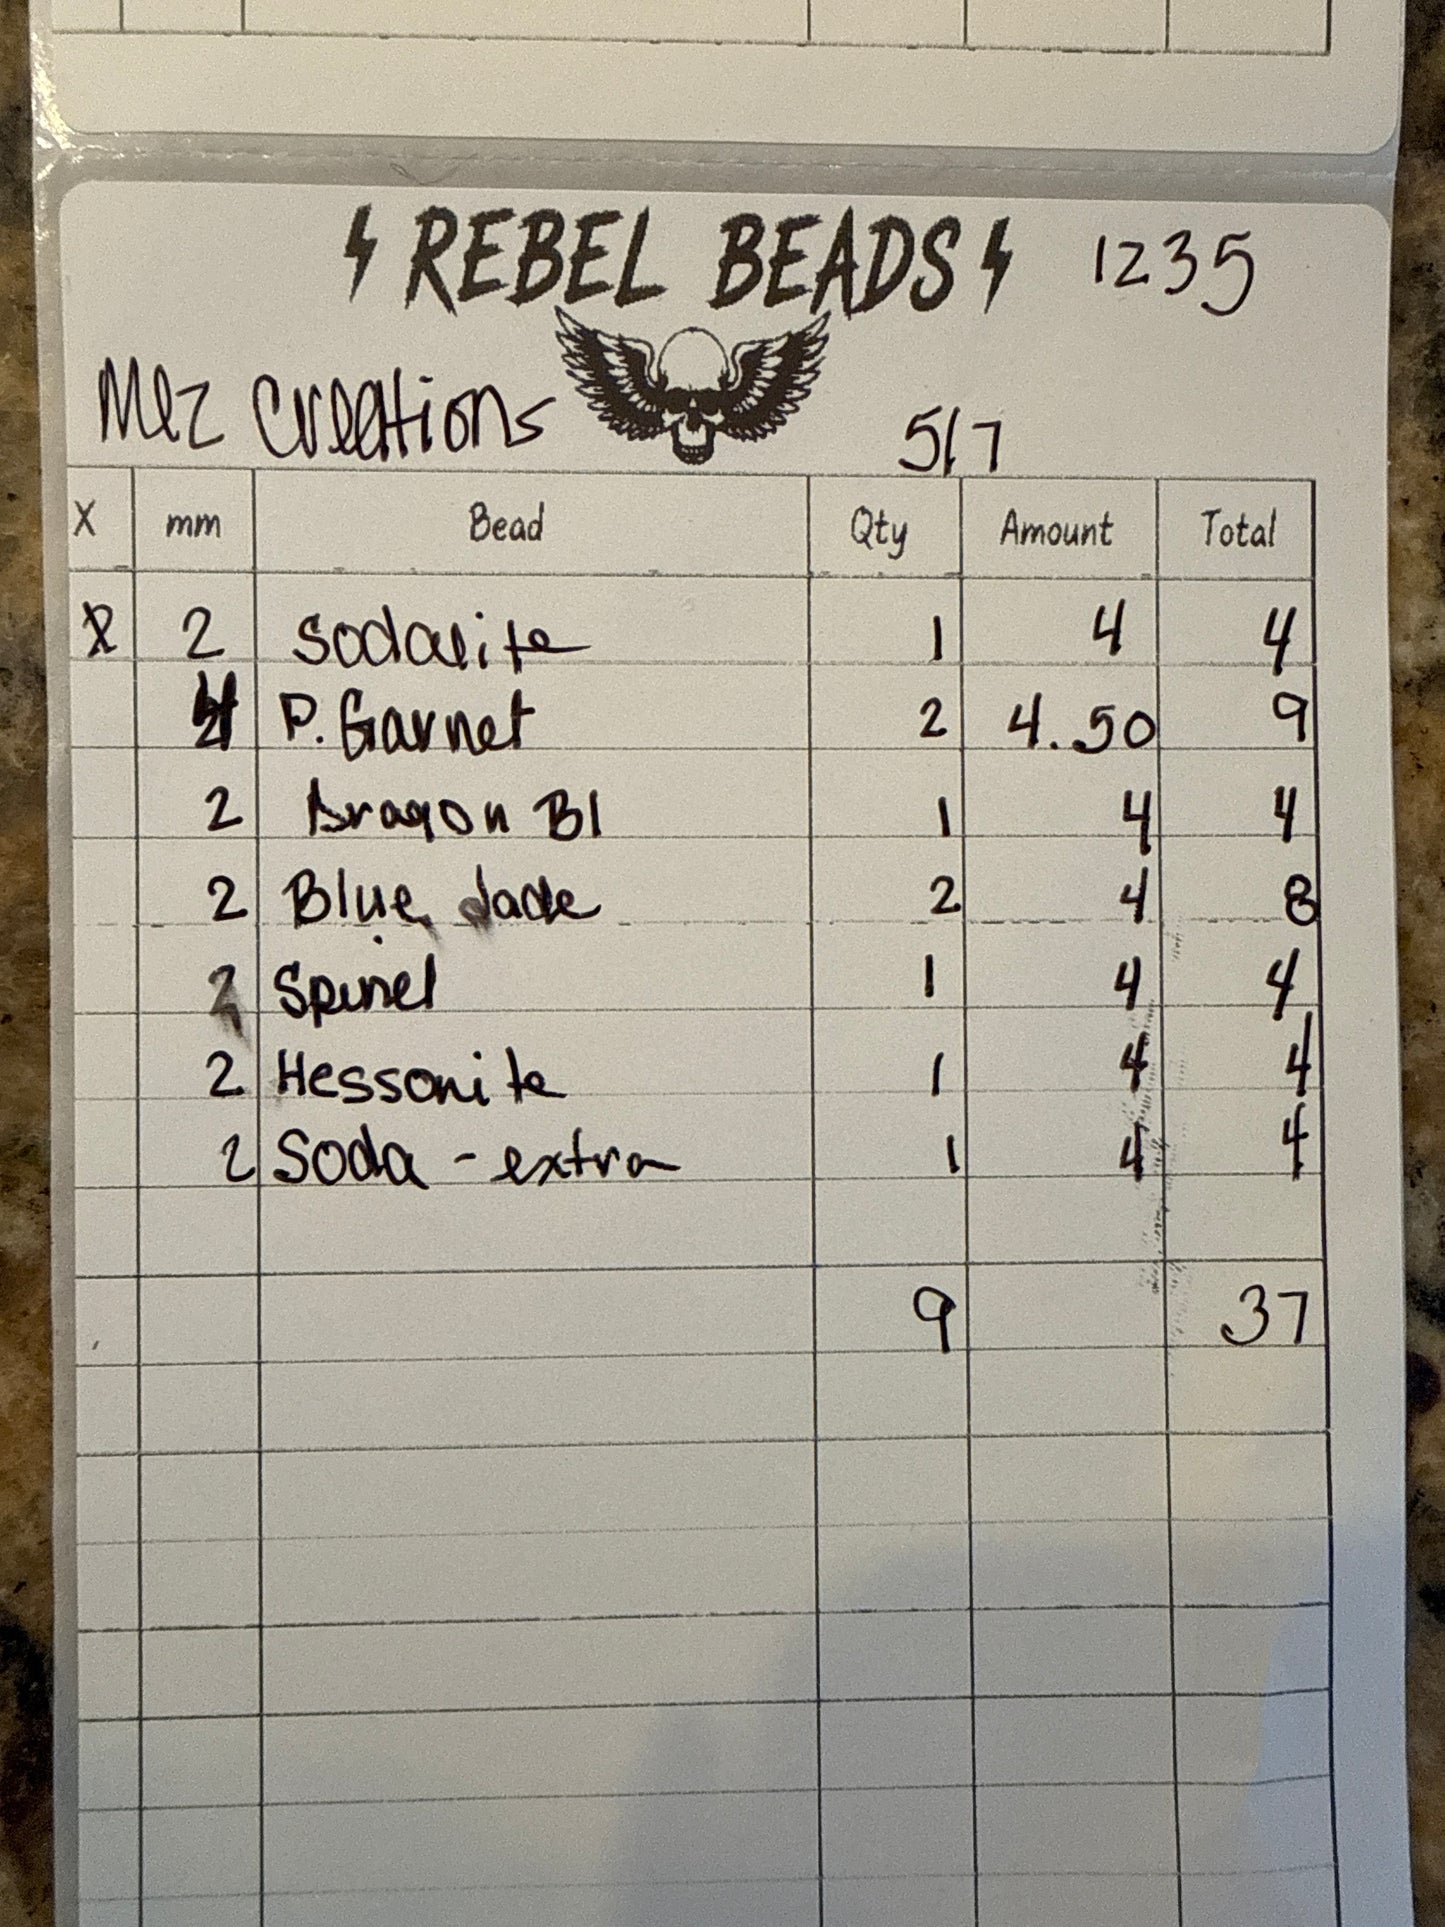 REBEL BEADS 1235
Mez Creations 5/7
X mm Bead Qty Amount Total
2 Sodalite 1 4 4
4 P. Garnet 2 4.50 9
2 Dragon Bl 1 4 4
2 Blue Jade 2 4 8
2 Spinel 1 4 4
2 Hessonite 1 4 4
2 Soda - extra 1 4 4
9 37